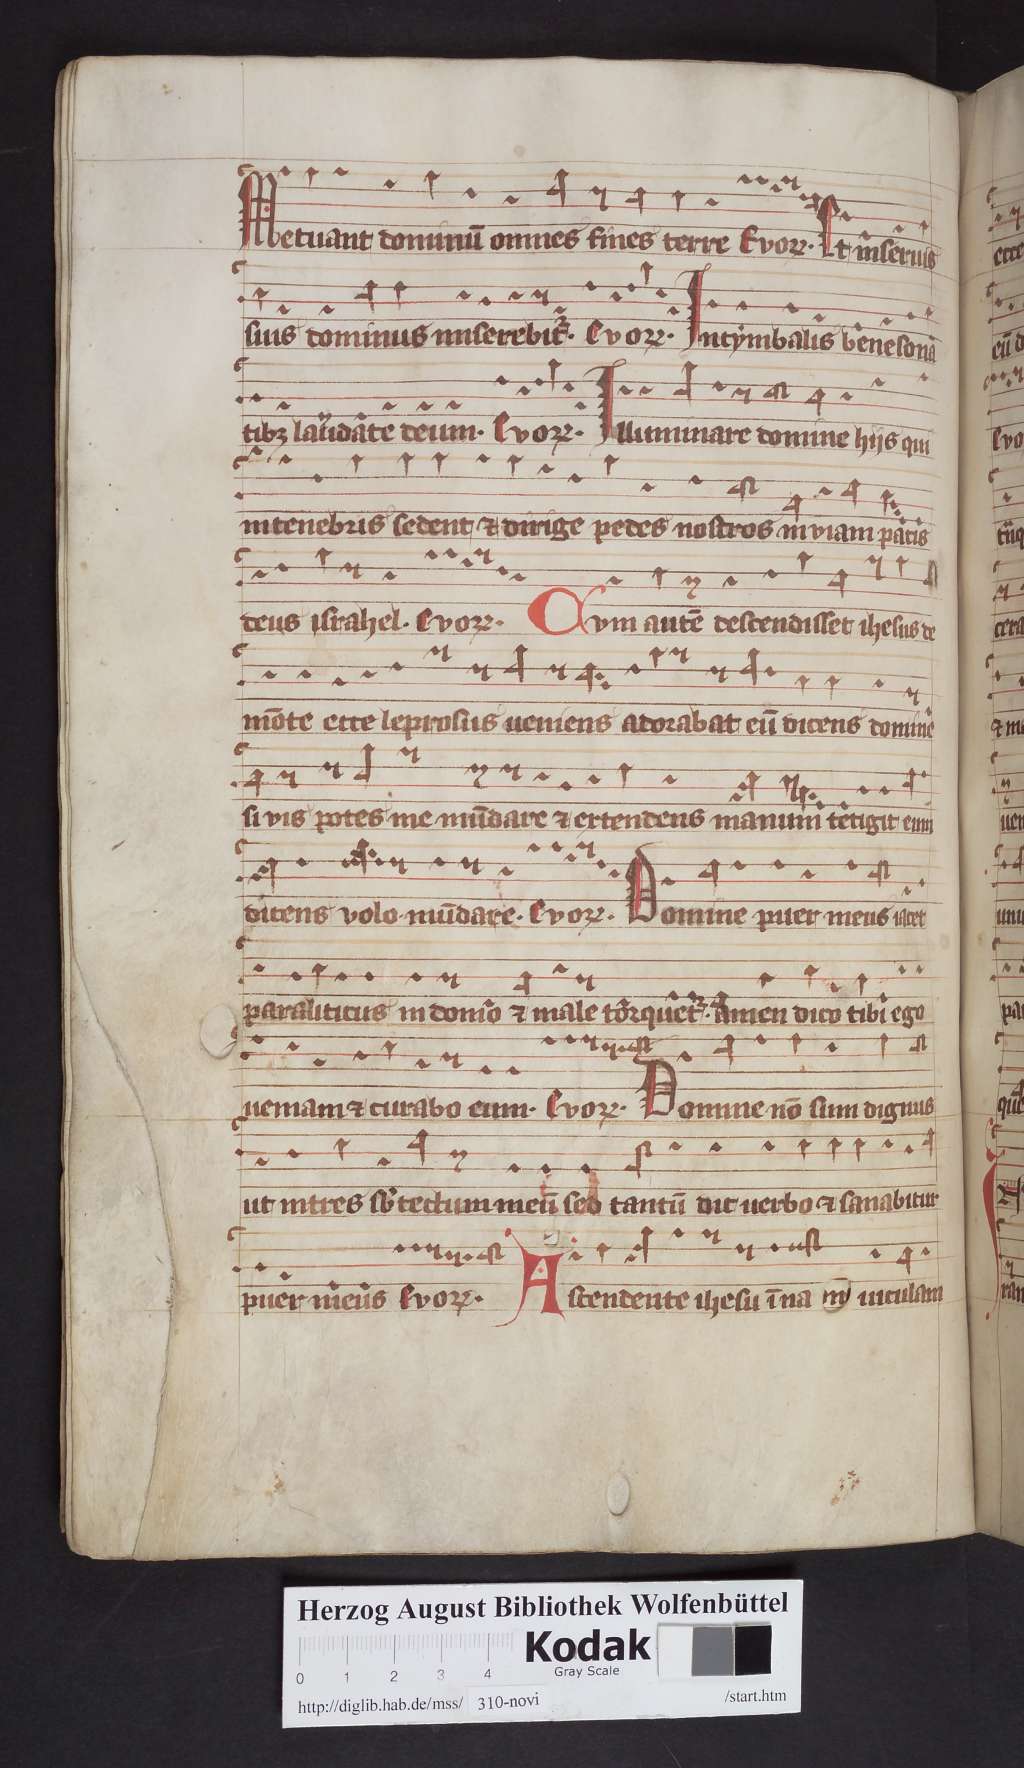 Metuant dominū omnes fines terre Evoꝝ. Et in seruis
suis dominus miserebitᷣ. Evoꝝ. In cymbalis benesonā
tibꝫ laudate deum. Evoꝝ. Illuminare domine hijs qui
in tenebris sedent ⁊ dirige pedes nostros in viam pacis
deus israhel. Evoꝝ. Cvm autē descendisset ihesus de
mōte ecce leprosus ueniens adorabat eū dicens domine
si vis potes me mūdare ⁊ extendens manum tetigit eum
dicens volo mūdare. Evoꝝ. Domine puer meus iacet
paraliticus in domo ⁊ male torquetᷣ. amen dico tibi ego
ueniam ⁊ curabo eum. Evoꝝ. Domine nō sum dignus
ut intres sb tectum meū sed tantū dic uerbo ⁊ sanabitur
puer meus Evoꝝ. Ascendente ihesu ī na m uiculam
Herzog August Bibliothek Wolfenbüttel
0 1 2 3 4
Kodak
Gray Scale
http://diglib.hab.de/mss/ 310-novi /start.htm